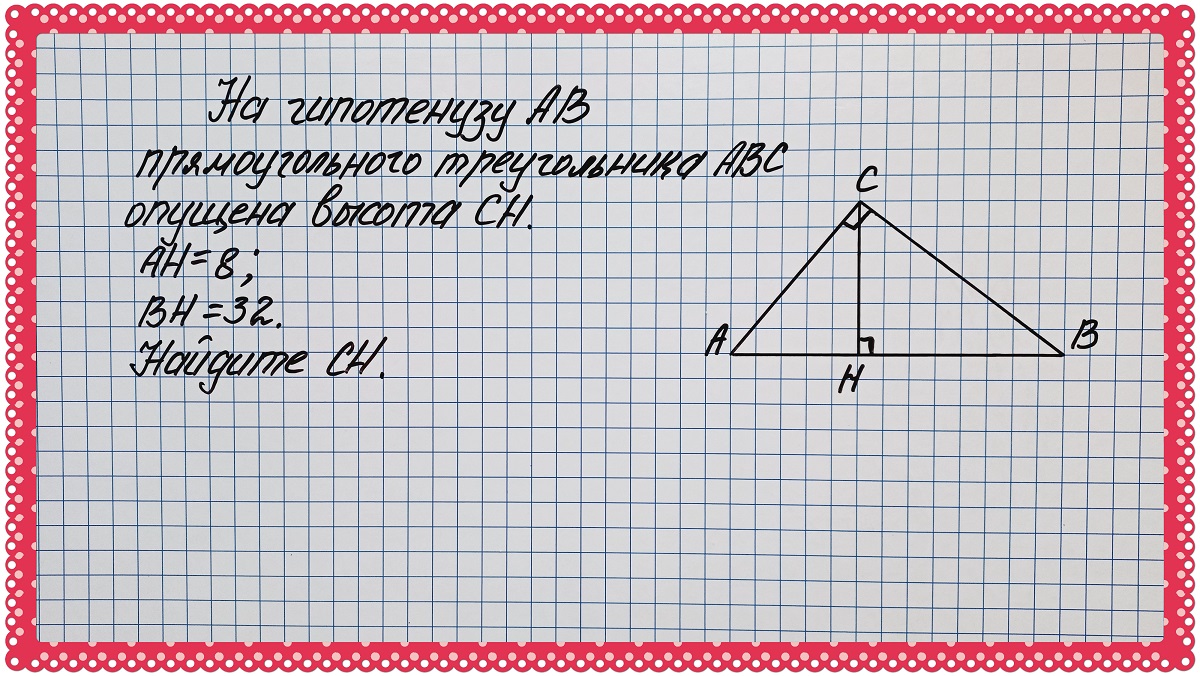 На гипотенузу AB
прямоугольного треугольника ABC
опущена высота CH.
AH=8;
BH=32.
Найдите CH.
C
A
B
H